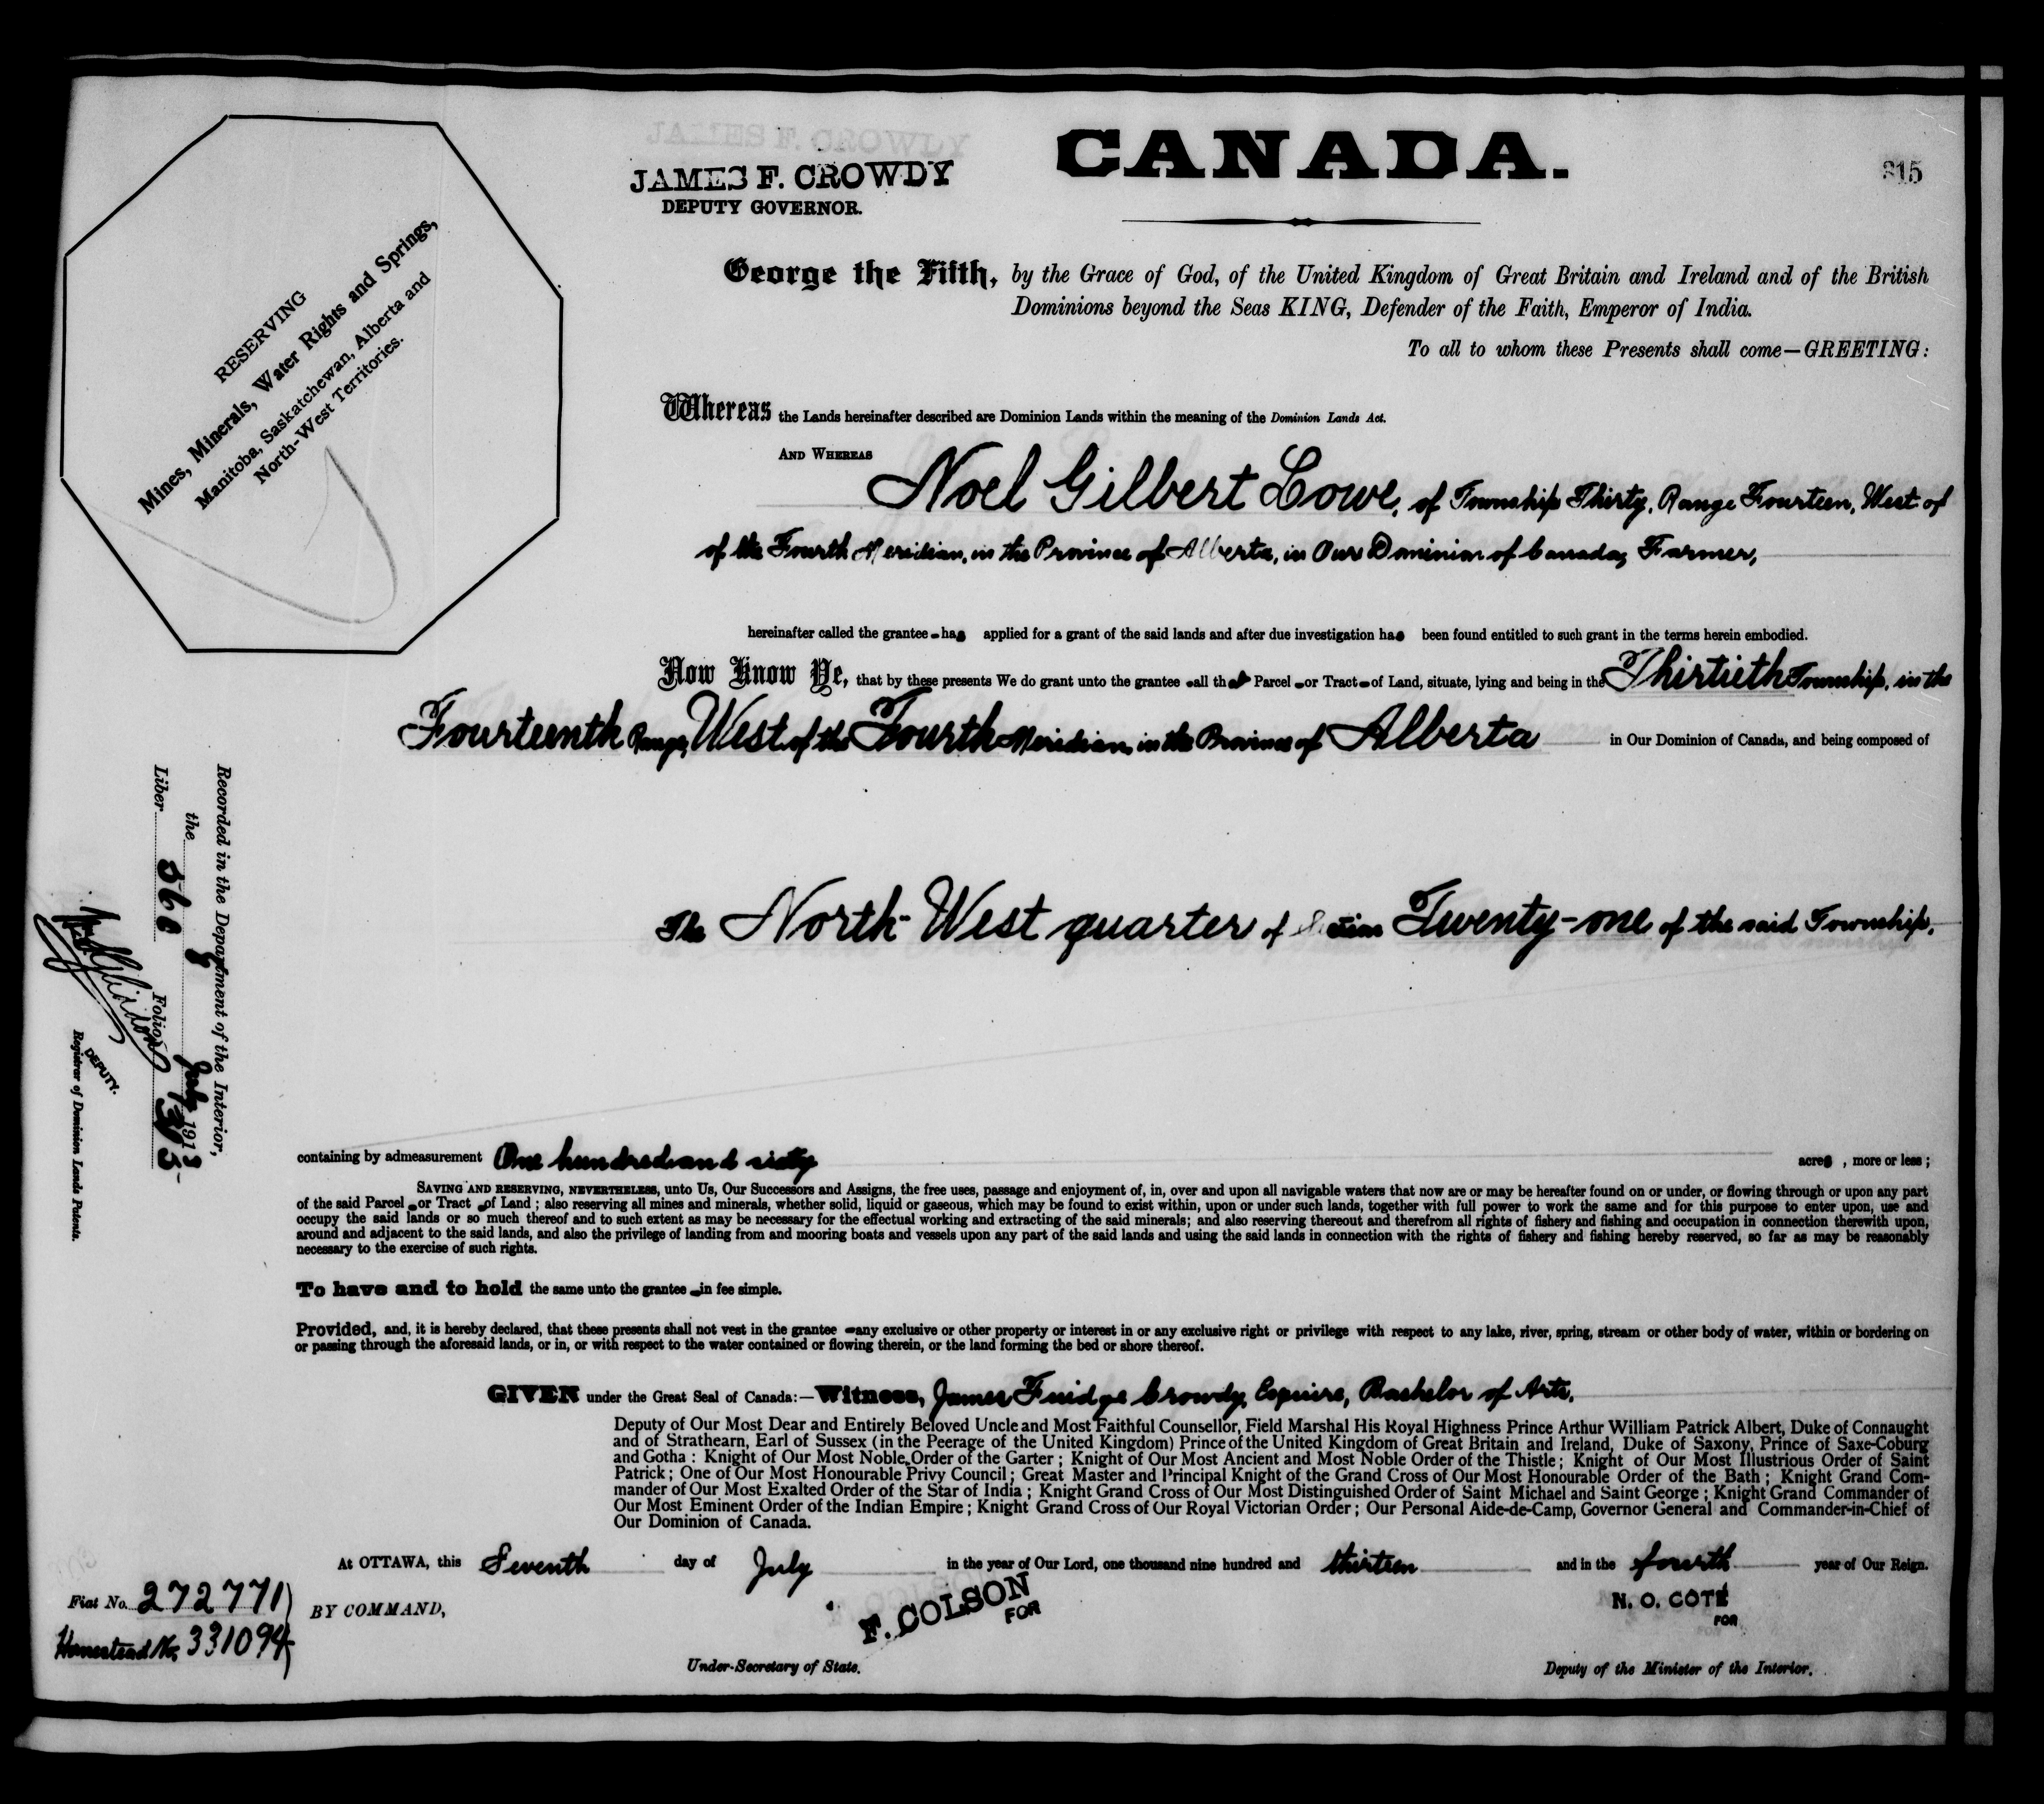 JAMES F. CROWDY
DEPUTY GOVERNOR.
CANADA.
315
RESERVING
Mines, Minerals, Water Rights and Springs,
Manitoba, Saskatchewan, Alberta and
North-West Territories.
George the Fifth, by the Grace of God, of the United Kingdom of Great Britain and Ireland and of the British
Dominions beyond the Seas KING, Defender of the Faith, Emperor of India.
To all to whom these Presents shall come—GREETING:
Whereas the Lands hereinafter described are Dominion Lands within the meaning of the Dominion Lands Act.
AND WHEREAS
Noel Gilbert Lowe, of Township Thirty, Range Fourteen, West of
of the Fourth Meridian, in the Province of Alberta, in Our Dominion of Canada, Farmer,
hereinafter called the grantee has applied for a grant of the said lands and after due investigation has been found entitled to such grant in the terms herein embodied.
Now Know Ye, that by these presents We do grant unto the grantee all that Parcel or Tract of Land, situate, lying and being in the Thirtieth Township, in the
Fourteenth Range, West of the Fourth Meridian, in the Province of Alberta in Our Dominion of Canada, and being composed of
The North-West quarter of Section Twenty-one of the said Township.
containing by admeasurement One hundred and sixty acres, more or less;
SAVING AND RESERVING, NEVERTHELESS, unto Us, Our Successors and Assigns, the free uses, passage and enjoyment of, in, over and upon all navigable waters that now are or may be hereafter found on or under, or flowing through or upon any part
of the said Parcel or Tract of Land; also reserving all mines and minerals, whether solid, liquid or gaseous, which may be found to exist within, upon or under such lands, together with full power to work the same and for this purpose to enter upon, use and
occupy the said lands or so much thereof and to such extent as may be necessary for the effectual working and extracting of the said minerals; and also reserving thereout and therefrom all rights of fishery and fishing and occupation in connection therewith upon,
around and adjacent to the said lands, and also the privilege of landing from and mooring boats and vessels upon any part of the said lands and using the said lands in connection with the rights of fishery and fishing hereby reserved, so far as may be reasonably
necessary to the exercise of such rights.
To have and to hold the same unto the grantee in fee simple.
Provided, and, it is hereby declared, that these presents shall not vest in the grantee any exclusive or other property or interest in or any exclusive right or privilege with respect to any lake, river, spring, stream or other body of water, within or bordering on
or passing through the aforesaid lands, or in, or with respect to the water contained or flowing therein, or the land forming the bed or shore thereof.
GIVEN under the Great Seal of Canada:—Witness, James Fuidge Crowdy, Esquire, Bachelor of Arts,
Deputy of Our Most Dear and Entirely Beloved Uncle and Most Faithful Counsellor, Field Marshal His Royal Highness Prince Arthur William Patrick Albert, Duke of Connaught
and of Strathearn, Earl of Sussex (in the Peerage of the United Kingdom) Prince of the United Kingdom of Great Britain and Ireland, Duke of Saxony, Prince of Saxe-Coburg
and Gotha: Knight of Our Most Noble Order of the Garter; Knight of Our Most Ancient and Most Noble Order of the Thistle; Knight of Our Most Illustrious Order of Saint
Patrick; One of Our Most Honourable Privy Council; Great Master and Principal Knight of the Grand Cross of Our Most Honourable Order of the Bath; Knight Grand Com-
mander of Our Most Exalted Order of the Star of India; Knight Grand Cross of Our Most Distinguished Order of Saint Michael and Saint George; Knight Grand Commander of
Our Most Eminent Order of the Indian Empire; Knight Grand Cross of Our Royal Victorian Order; Our Personal Aide-de-Camp, Governor General and Commander-in-Chief of
Our Dominion of Canada.
At OTTAWA, this Seventh day of July in the year of Our Lord, one thousand nine hundred and thirteen and in the fourth year of Our Reign.
Fiat No. 272771
BY COMMAND,
Homestead No. 331094
F. COLSON
FOR
Under-Secretary of State.
N. O. COTÉ
FOR
Deputy of the Minister of the Interior.
Recorded in the Department of the Interior,
the 8 July 1913
Liber Folio
DEPUTY.
Registrar of Dominion Lands Patents.